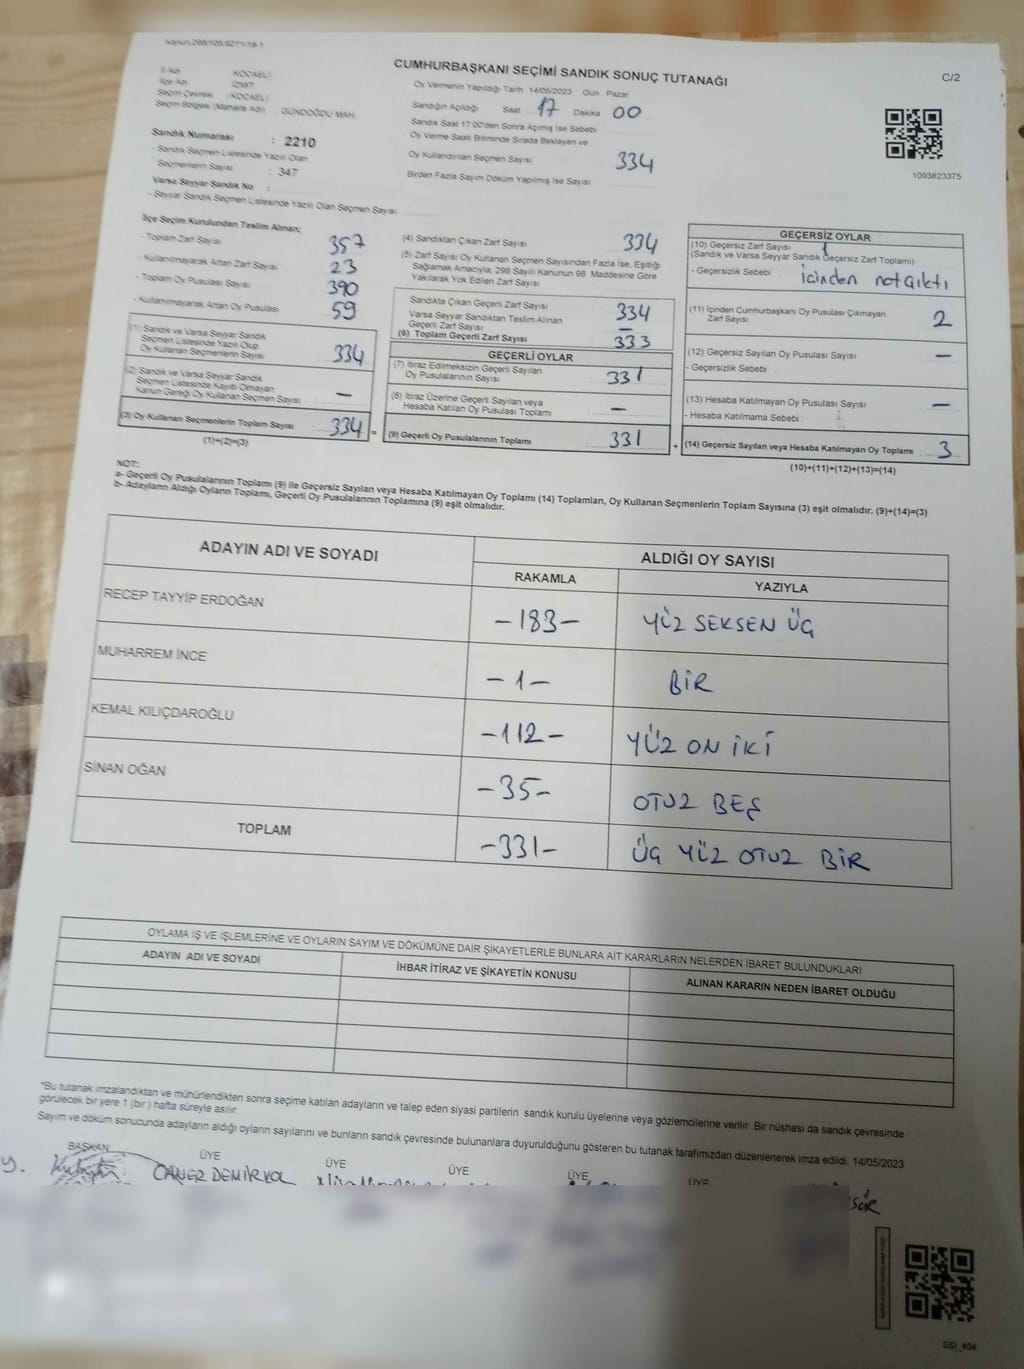 CUMHURBAŞKANI SEÇİMİ SANDIK SONUÇ TUTANAĞI
C/2
İl Adı : KOCAELİ
İlçe Adı : İZMİT
Seçim Çevresi : KOCAELİ
Seçim Bölgesi (Mahalle Adı) : GÜNDOĞDU MAH.
Sandık Numarası : 2210
- Sandık Seçmen Listesinde Yazılı Olan
Seçmenlerin Sayısı : 347
Varsa Seyyar Sandık No :
- Seyyar Sandık Seçmen Listesinde Yazılı Olan Seçmen Sayısı
Oy Vermenin Yapıldığı Tarih 14/05/2023 Gün Pazar
Sandığın Açıldığı Saat 17 Dakika 00
Sandık Saat 17:00'den Sonra Açımış İse Sebebi
Oy Verme Saati Bitiminde Sırada Bekleyen ve
Oy Kullandırılan Seçmen Sayısı 334
Birden Fazla Sayım Döküm Yapılmış İse Sayısı
1093823375
İlçe Seçim Kurulundan Teslim Alınan;
- Toplam Zarf Sayısı 357
- Kullanılmayarak Artan Zarf Sayısı 23
- Toplam Oy Pusulası Sayısı 390
- Kullanılmayarak Artan Oy Pusulası 59
(1) Sandık ve Varsa Seyyar Sandık
Seçmen Listesinde Yazılı Olup
Oy Kullanan Seçmenlerin Sayısı : 334
(2) Sandık ve Varsa Seyyar Sandık
Seçmen Listesinde Kayıtlı Olmayan
Kanun Gereği Oy Kullanan Seçmen Sayısı : —
(3) Oy Kullanan Seçmenlerin Toplam Sayısı : 334 =
(1)+(2)=(3)
(4) Sandıktan Çıkan Zarf Sayısı 334
(5) Zarf Sayısı Oy Kullanan Seçmen Sayısından Fazla İse, Eşitliği
Sağlamak Amacıyla, 298 Sayılı Kanunun 98. Maddesine Göre
Yakılarak Yok Edilen Zarf Sayısı
Sandıkta Çıkan Geçerli Zarf Sayısı 334
Varsa Seyyar Sandıktan Teslim Alınan
Geçerli Zarf Sayısı —
(6) Toplam Geçerli Zarf Sayısı 333
GEÇERLİ OYLAR
(7) İtiraz Edilmeksizin Geçerli Sayılan
Oy Pusulalarının Sayısı 331
(8) İtiraz Üzerine Geçerli Sayılan veya
Hesaba Katılan Oy Pusulası Toplamı —
(9) Geçerli Oy Pusulalarının Toplamı 331 +
GEÇERSİZ OYLAR
(10) Geçersiz Zarf Sayısı 1
(Sandık ve Varsa Seyyar Sandık Geçersiz Zarf Toplamı)
- Geçersizlik Sebebi : içinden not çıktı
(11) İçinden Cumhurbaşkanı Oy Pusulası Çıkmayan
Zarf Sayısı 2
(12) Geçersiz Sayılan Oy Pusulası Sayısı —
- Geçersizlik Sebebi
(13) Hesaba Katılmayan Oy Pusulası Sayısı —
- Hesaba Katılmama Sebebi :
(14) Geçersiz Sayılan veya Hesaba Katılmayan Oy Toplamı : 3
(10)+(11)+(12)+(13)=(14)
NOT:
a- Geçerli Oy Pusulalarının Toplamı (9) ile Geçersiz Sayılan veya Hesaba Katılmayan Oy Toplamı (14) Toplamları, Oy Kullanan Seçmenlerin Toplam Sayısına (3) eşit olmalıdır. (9)+(14)=(3)
b- Adayların Aldığı Oyların Toplamı, Geçerli Oy Pusulalarının Toplamına (9) eşit olmalıdır.
ADAYIN ADI VE SOYADI
ALDIĞI OY SAYISI
RAKAMLA
YAZIYLA
RECEP TAYYİP ERDOĞAN -183- YÜZ SEKSEN ÜÇ
MUHARREM İNCE -1- BİR
KEMAL KILIÇDAROĞLU -112- YÜZ ON İKİ
SİNAN OĞAN -35- OTUZ BEŞ
TOPLAM -331- ÜÇ YÜZ OTUZ BİR
OYLAMA İŞ VE İŞLEMLERİNE VE OYLARIN SAYIM VE DÖKÜMÜNE DAİR ŞİKAYETLERLE BUNLARA AİT KARARLARIN NELERDEN İBARET BULUNDUKLARI
ADAYIN ADI VE SOYADI
İHBAR İTİRAZ VE ŞİKAYETİN KONUSU
ALINAN KARARIN NEDEN İBARET OLDUĞU
*Bu tutanak imzalandıktan ve mühürlendikten sonra seçime katılan adayların ve talep eden siyasi partilerin sandık kurulu üyelerine veya gözlemcilerine verilir. Bir nüshası da sandık çevresinde
görülecek bir yere 1 (bir) hafta süreyle asılır.
Sayım ve döküm sonucunda adayların aldığı oyların sayılarını ve bunların sandık çevresinde bulunanlara duyurulduğunu gösteren bu tutanak tarafımızdan düzenlenerek imza edildi. 14/05/2023
BAŞKAN ÜYE ÜYE ÜYE ÜYE ÜYE
CANER DEMİRKOL
SSI_404